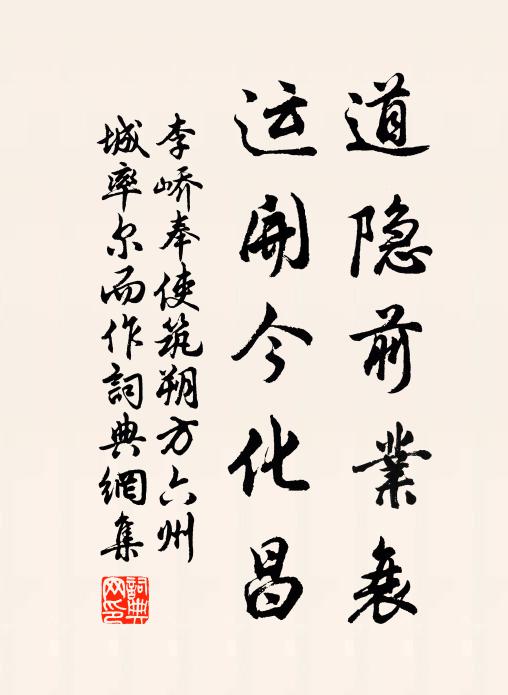 道隐前業衰
运開今化昌
李峤奉使筑朔方六州
城率尔而作詞典網集
詞典網印